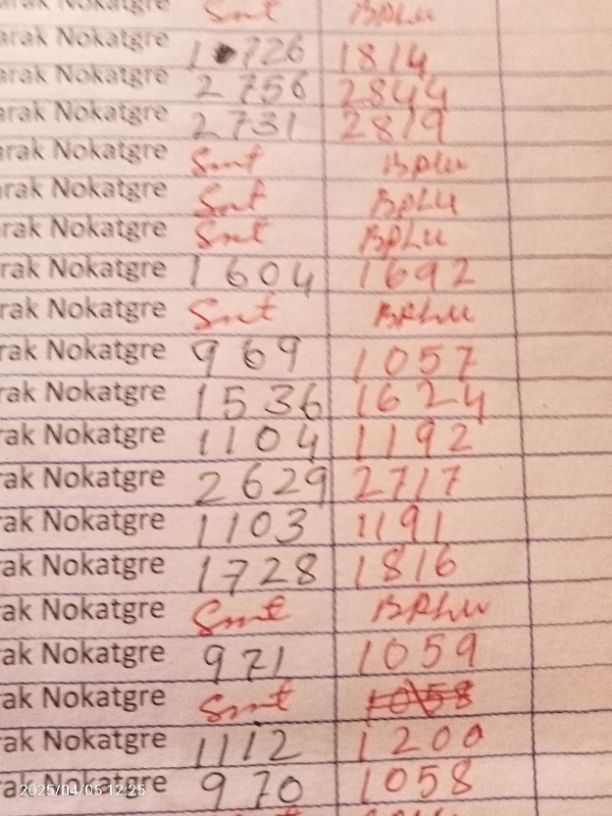 arak Nokatgre Smt BPLU
arak Nokatgre 1 726 1814
arak Nokatgre 2 756 2844
arak Nokatgre 2 731 2819
arak Nokatgre Smt BPLU
arak Nokatgre Smt BPLU
rak Nokatgre Smt BPLU
rak Nokatgre 1 604 1692
rak Nokatgre Smt BPLU
rak Nokatgre 969 1057
rak Nokatgre 1536 1624
rak Nokatgre 1104 1192
rak Nokatgre 2629 2717
rak Nokatgre 1103 1191
rak Nokatgre 1728 1816
rak Nokatgre Smt BPLU
rak Nokatgre 971 1059
rak Nokatgre Smt 1058
rak Nokatgre 1112 1200
ak Nokatgre 970 1058
2025/04/05 12:25